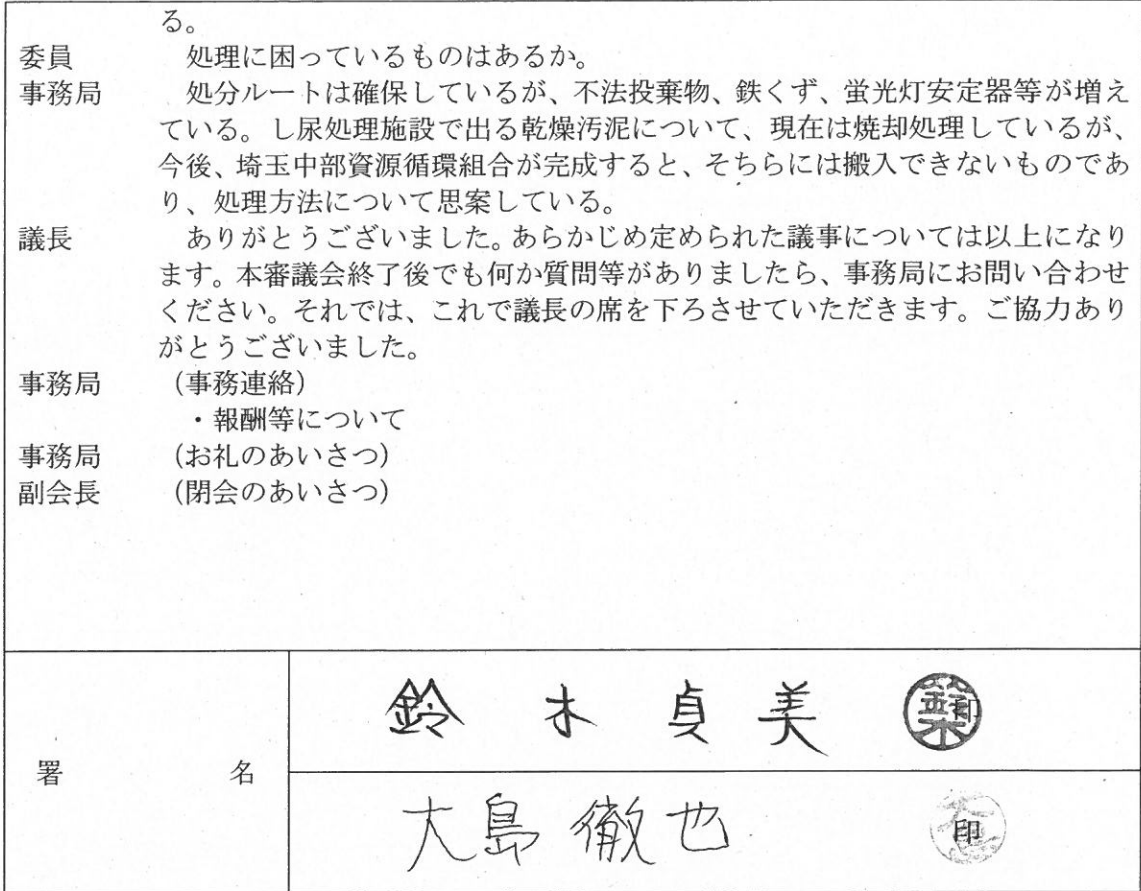 る。
委員　処理に困っているものはあるか。
事務局　処分ルートは確保しているが、不法投棄物、鉄くず、蛍光灯安定器等が増え
ている。し尿処理施設で出る乾燥汚泥について、現在は焼却処理しているが、
今後、埼玉中部資源循環組合が完成すると、そちらには搬入できないものであ
り、処理方法について思案している。
議長　ありがとうございました。あらかじめ定められた議事については以上になり
ます。本審議会終了後でも何か質問等がありましたら、事務局にお問い合わせ
ください。それでは、これで議長の席を下ろさせていただきます。ご協力あり
がとうございました。
事務局　（事務連絡）
・報酬等について
事務局　（お礼のあいさつ）
副会長　（閉会のあいさつ）
署　名
鈴木貞美　印
大島徹也　印